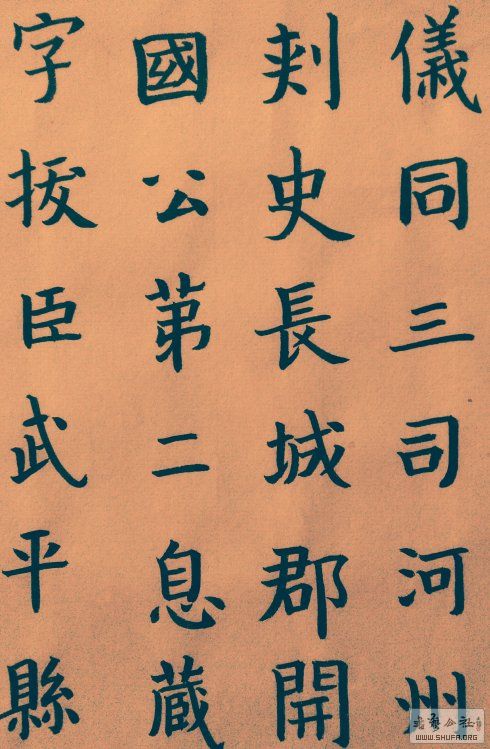 儀同三司河州
刺史長城郡開
國公苐二息蔵
字拔臣武平縣
WWW.SHUFA.ORG